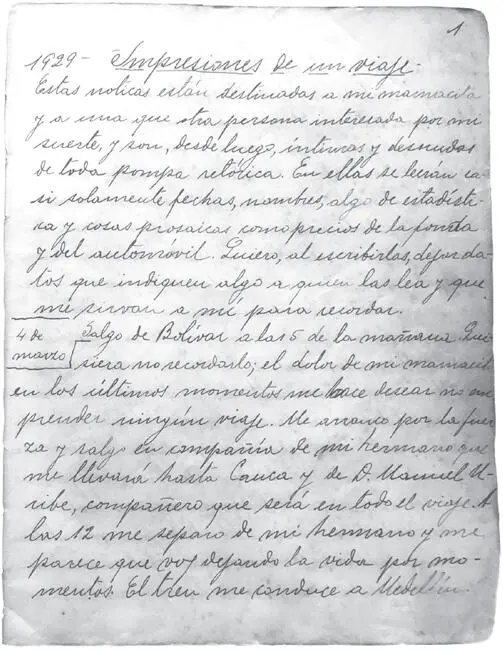 1
1929 - Impresiones de un viaje -
Estas noticas están destinadas a mi mamacita
y a una que otra persona interesada por mi
suerte, y son, desde luego, íntimas y desnudas
de toda pompa retórica. En ellas se leerán ca-
si solamente fechas, nombres, algo de estadísti-
ca y cosas prosaicas como precios de la fonda
y del automóvil. Quiero, al escribirlas, dejar da-
tos que indiquen algo a quien las lea y que
me sirvan a mí para recordar.
4 de marzo
Salgo de Bolívar a las 5 de la mañana. Qui-
siera no recordarlo; el dolor de mi mamacita
en los últimos momentos me hace desear no em-
prender ningún viaje. Me arranco por la fuer-
za y salgo en compañía de mi hermano que
me llevará hasta Cauca y de D. Manuel U-
ribe, compañero que será en todo el viaje. A
las 12 me separo de mi hermano y me
parece que voy dejando la vida por mo-
mentos. El tren me conduce a Medellín.